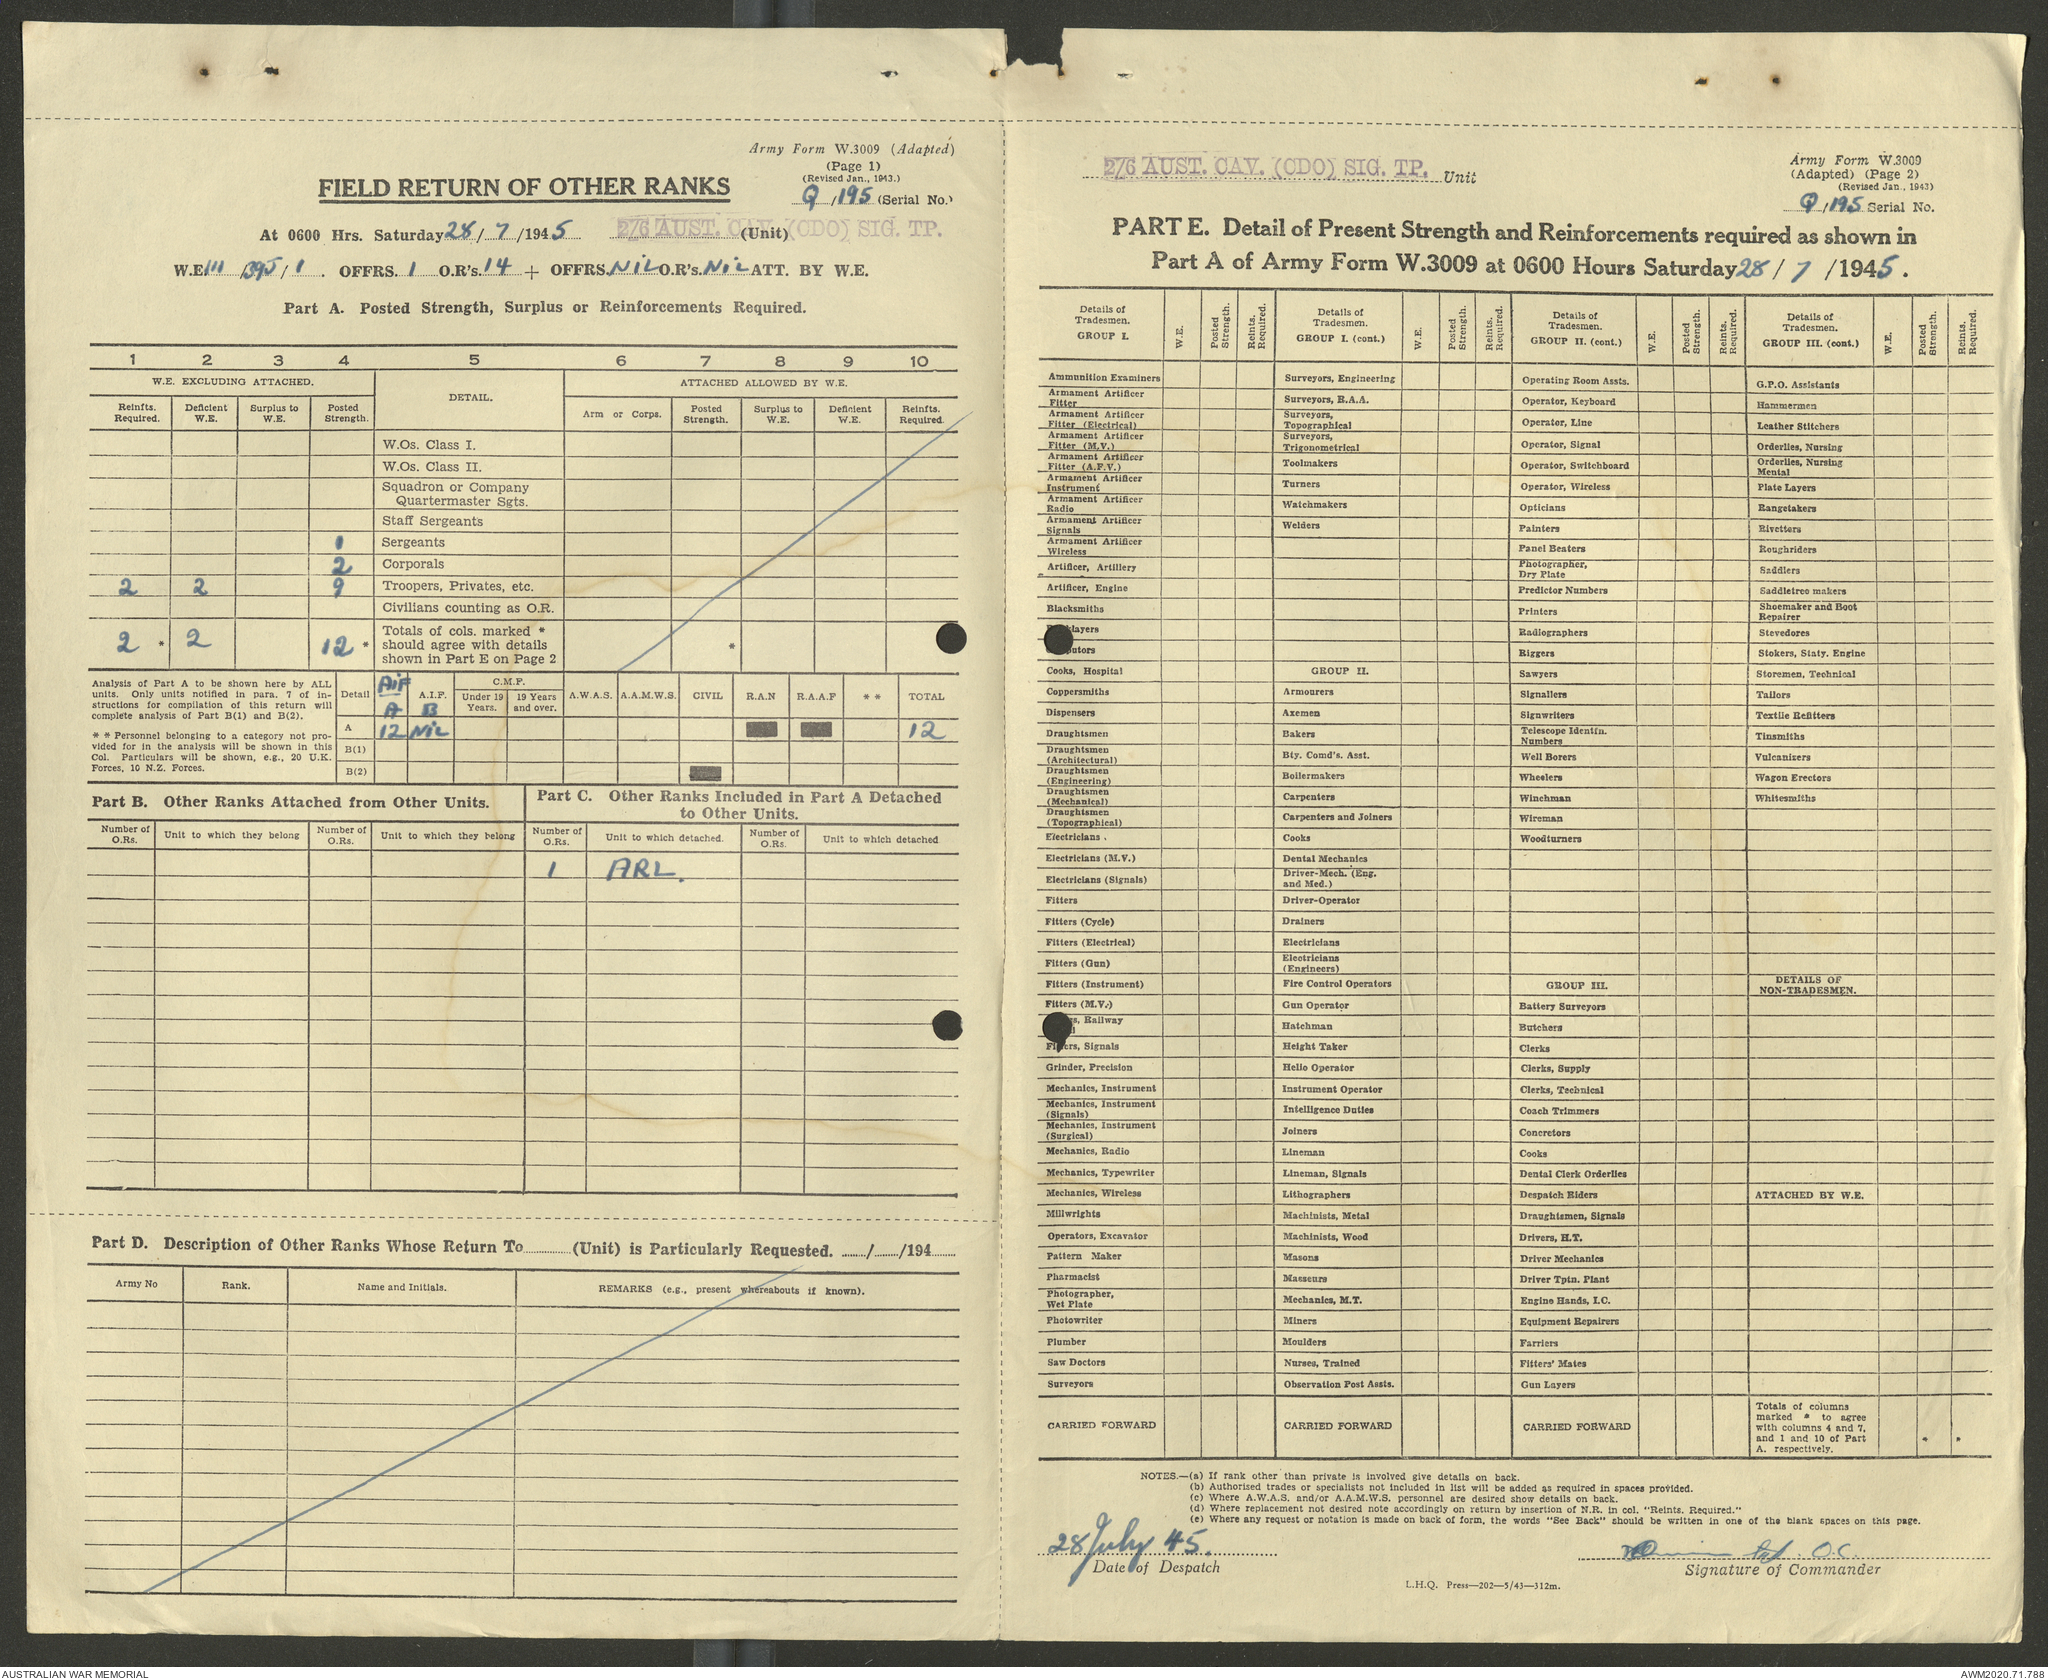 Army Form W.3009 (Adapted)
(Page 1)
(Revised Jan., 1943.)
FIELD RETURN OF OTHER RANKS
Q/195 (Serial No.)
At 0600 Hrs. Saturday 28/7/1945 2/6 AUST. CAV. (CDO) SIG. TP. (Unit)
W.E. III/395/1. OFFRS. 1 O.R's. 14 + OFFRS. NiL O.R's. NiL ATT. BY W.E.
Part A. Posted Strength, Surplus or Reinforcements Required.
1 2 3 4 5 6 7 8 9 10
W.E. EXCLUDING ATTACHED. DETAIL. ATTACHED ALLOWED BY W.E.
Reinfts. Required. Deficient W.E. Surplus to W.E. Posted Strength. Arm or Corps. Posted Strength. Surplus to W.E. Deficient W.E. Reinfts. Required.
W.Os. Class I.
W.Os. Class II.
Squadron or Company
Quartermaster Sgts.
Staff Sergeants
1 Sergeants
2 Corporals
2 2 9 Troopers, Privates, etc.
Civilians counting as O.R.
2 * 2 12 * Totals of cols. marked *
should agree with details *
shown in Part E on Page 2
Analysis of Part A to be shown here by ALL
units. Only units notified in para. 7 of in-
structions for compilation of this return will
complete analysis of Part B(1) and B(2).
* * Personnel belonging to a category not pro-
vided for in the analysis will be shown in this
Col. Particulars will be shown, e.g., 20 U.K.
Forces, 10 N.Z. Forces.
Detail AiF A A.I.F. B C.M.F. Under 19 Years. 19 Years and over. A.W.A.S. A.A.M.W.S. CIVIL R.A.N R.A.A.F * * TOTAL
A 12 NiL 12
B(1)
B(2)
Part B. Other Ranks Attached from Other Units.
Number of O.Rs. Unit to which they belong Number of O.Rs. Unit to which they belong
Part C. Other Ranks Included in Part A Detached
to Other Units.
Number of O.Rs. Unit to which detached. Number of O.Rs. Unit to which detached
1 ARL.
Part D. Description of Other Ranks Whose Return To (Unit) is Particularly Requested. / /194
Army No Rank. Name and Initials. REMARKS (e.g., present whereabouts if known).
2/6 AUST. CAV. (CDO) SIG. TP. Unit
Army Form W.3009
(Adapted) (Page 2)
(Revised Jan., 1943)
Q/195 Serial No.
PART E. Detail of Present Strength and Reinforcements required as shown in
Part A of Army Form W.3009 at 0600 Hours Saturday 28/7/1945.
Details of Tradesmen. GROUP I. W.E. Posted Strength. Reints. Required.
Ammunition Examiners
Armament Artificer
Fitter
Armament Artificer
Fitter (Electrical)
Armament Artificer
Fitter (M.V.)
Armament Artificer
Fitter (A.F.V.)
Armament Artificer
Instrument
Armament Artificer
Radio
Armament Artificer
Signals
Armament Artificer
Wireless
Artificer, Artillery
Artificer, Engine
Blacksmiths
Cooks, Hospital
Coppersmiths
Dispensers
Draughtsmen
Draughtsmen
(Architectural)
Draughtsmen
(Engineering)
Draughtsmen
(Mechanical)
Draughtsmen
(Topographical)
Electricians.
Electricians (M.V.)
Electricians (Signals)
Fitters
Fitters (Cycle)
Fitters (Electrical)
Fitters (Gun)
Fitters (Instrument)
Fitters (M.V.)
Railway
Fitters, Signals
Grinder, Precision
Mechanics, Instrument
Mechanics, Instrument
(Signals)
Mechanics, Instrument
(Surgical)
Mechanics, Radio
Mechanics, Typewriter
Mechanics, Wireless
Millwrights
Operators, Excavator
Pattern Maker
Pharmacist
Photographer,
Wet Plate
Photowriter
Plumber
Saw Doctors
Surveyors
CARRIED FORWARD
Details of Tradesmen. GROUP I. (cont.) W.E. Posted Strength. Reints. Required.
Surveyors, Engineering
Surveyors, R.A.A.
Surveyors,
Topographical
Surveyors,
Trigonometrical
Toolmakers
Turners
Watchmakers
Welders
GROUP II.
Armourers
Axemen
Bakers
Bty. Comd's. Asst.
Boilermakers
Carpenters
Carpenters and Joiners
Cooks
Dental Mechanics
Driver-Mech. (Eng.
and Med.)
Driver-Operator
Drainers
Electricians
Electricians
(Engineers)
Fire Control Operators
Gun Operator
Hatchman
Height Taker
Helio Operator
Instrument Operator
Intelligence Duties
Joiners
Lineman
Lineman, Signals
Lithographers
Machinists, Metal
Machinists, Wood
Masons
Masseurs
Mechanics, M.T.
Miners
Moulders
Nurses, Trained
Observation Post Assts.
CARRIED FORWARD
Details of Tradesmen. GROUP II. (cont.) W.E. Posted Strength. Reints. Required.
Operating Room Assts.
Operator, Keyboard
Operator, Line
Operator, Signal
Operator, Switchboard
Operator, Wireless
Opticians
Painters
Panel Beaters
Photographer,
Dry Plate
Predictor Numbers
Printers
Radiographers
Riggers
Sawyers
Signallers
Signwriters
Telescope Identfn.
Numbers
Well Borers
Wheelers
Winchman
Wireman
Woodturners
GROUP III.
Battery Surveyors
Butchers
Clerks
Clerks, Supply
Clerks, Technical
Coach Trimmers
Concretors
Cooks
Dental Clerk Orderlies
Despatch Riders
Draughtsmen, Signals
Drivers, H.T.
Driver Mechanics
Driver Tptn. Plant
Engine Hands, I.C.
Equipment Repairers
Farriers
Fitters' Mates
Gun Layers
CARRIED FORWARD
Details of Tradesmen. GROUP III. (cont.) W.E. Posted Strength. Reints. Required.
G.P.O. Assistants
Hammermen
Leather Stitchers
Orderlies, Nursing
Orderlies, Nursing
Mental
Plate Layers
Rangetakers
Rivetters
Roughriders
Saddlers
Saddletree makers
Shoemaker and Boot
Repairer
Stevedores
Stokers, Staty. Engine
Storemen, Technical
Tailors
Textile Refitters
Tinsmiths
Vulcanizers
Wagon Erectors
Whitesmiths
DETAILS OF
NON-TRADESMEN.
ATTACHED BY W.E.
Totals of columns
marked * to agree
with columns 4 and 7,
and 1 and 10 of Part * *
A. respectively.
NOTES.—(a) If rank other than private is involved give details on back.
(b) Authorised trades or specialists not included in list will be added as required in spaces provided.
(c) Where A.W.A.S. and/or A.A.M.W.S. personnel are desired show details on back.
(d) Where replacement not desired note accordingly on return by insertion of N.R. in col. "Reints. Required."
(e) Where any request or notation is made on back of form, the words "See Back" should be written in one of the blank spaces on this page.
28 July 45.
Date of Despatch
O.C.
Signature of Commander
L.H.Q. Press—202—5/43—312m.
AUSTRALIAN WAR MEMORIAL
AWM2020.71.788